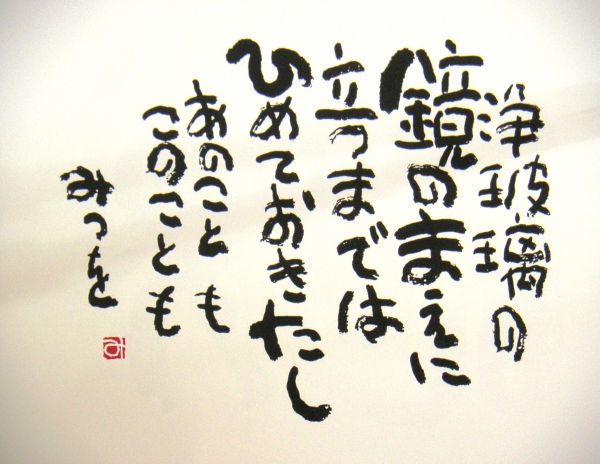 浄玻璃の
鏡のまえに
立つまでは
ひめておきたし
あのことも
このことも
みつを
み